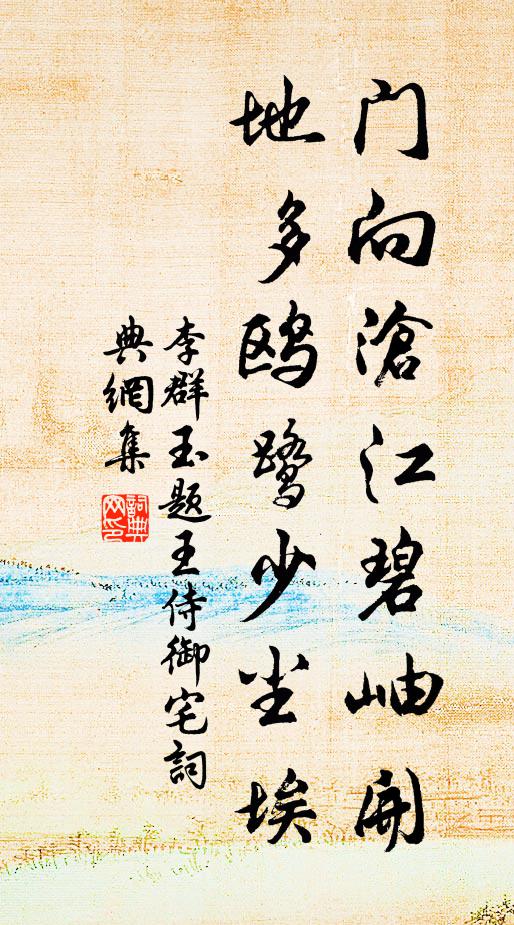 门向滄江碧岫開
地多鸥鹭少尘埃
李群玉题王侍御宅詞
典網集
詞典網印